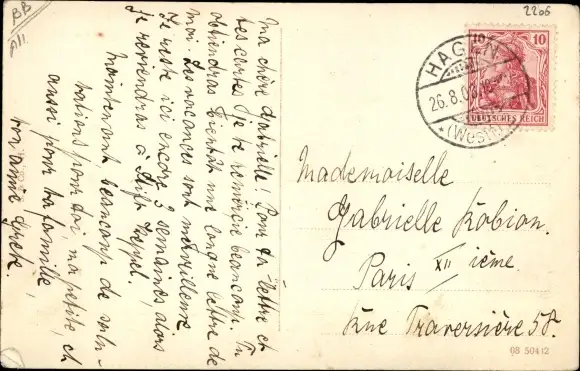 BB
All.
2206
10 10
HAGEN
26.8.08
*(Westf)
DEUTSCHES REICH
Ma chère Gabrielle! Pour ta lettre et
tes cartes je te remercie beaucoup. Tu
obtiendras bientôt une longue lettre de
moi. Les vacances sont merveilleuse
Je reste ici encore 3 semaines, alors
Je reviendras à
maintenant beaucoup de salu-
tations pour toi, ma petite, et
aussi pour ta famille,
ton amie
Mademoiselle
Gabrielle Kobion.
Paris XII ième.
Rue Traversière 58.
08 50412